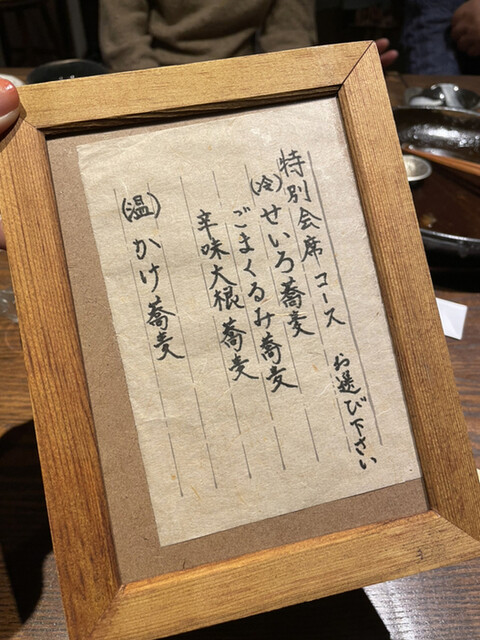 特別会席 コース
お選び下さい
(冷)せいろ蕎麦
ごまくるみ蕎麦
辛味大根蕎麦
(温)かけ蕎麦